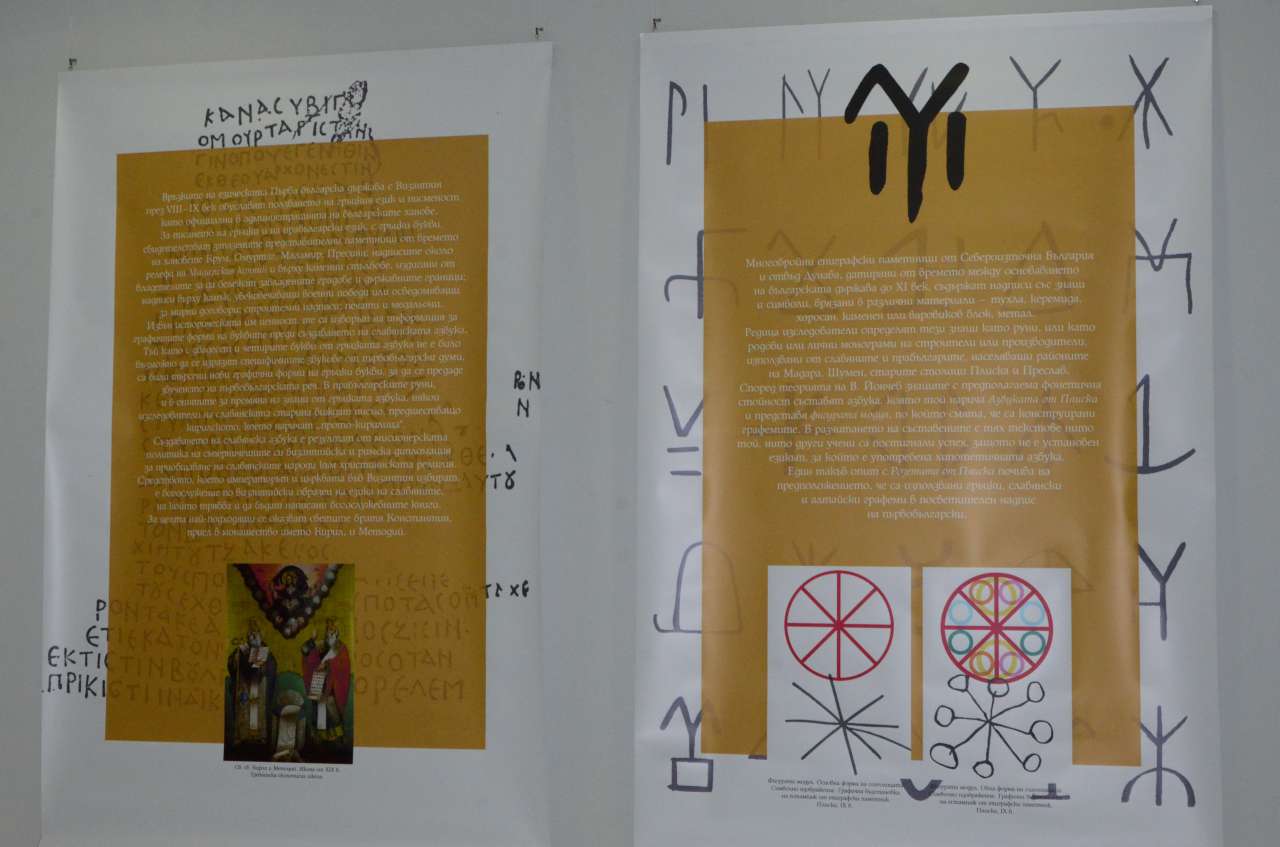 ΚΑΝΑСΥΒΙΓΙ
ΟΜΟΥΡΤΑΓΙСΤ
Връзките на езическата Първа българска държава с Византия
през VIII–IX век обуславят ползването на гръцкия език и писменост
като официални в администрацията на българските ханове.
За писането на гръцки и на прабългарски език, с гръцки букви,
свидетелстват запазените представителни паметници от времето
на хановете Крум, Омуртаг, Маламир, Пресиян: надписите около
релефа на Мадарския конник и върху каменни стълбове, издигани от
владетелите за да бележат завладените градове и държавните граници;
надписи върху камък, увековечаващи военни победи или осведомяващи
за мирни договори; строителни надписи; печати и медальони.
Извън историческата им ценност, те са изворът на информация за
графичните форми на буквите преди създаването на славянската азбука.
Тъй като с двадесет и четирите букви от гръцката азбука не е било
възможно да се изразят специфичните звукове от първобългарски думи,
са били търсени нови графични форми на гръцки букви, за да се предаде
звученето на първобългарската реч. В прабългарските руни,
и в опитите за промяна на знаци от гръцката азбука, някои
изследователи на славянската старина виждат писмо, предшестващо
кирилското, което наричат „прото-кирилица“.
Създаването на славянска азбука е резултат от мисионерската
политика на съперничещите си византийска и римска дипломация
за приобщаване на славянските народи към християнската религия.
Средството, което императорът и църквата във Византия избират,
е богослужение по византийски образец на езика на славяните,
на който трябва и да бъдат написани богослужебните книги.
За целта най-подходящи се оказват светите братя Константин,
приел в монашество името Кирил, и Методий.
ΕΚΤΙСΤΙΝ
Св. св. Кирил и Методий. Икона от XIX в.
Многобройни епиграфски паметници от Североизточна България
и отвъд Дунава, датирани от времето между основаването
на българската държава до XI век, съдържат надписи със знаци
и символи, врязани в различни материали – тухла, керемида,
хоросан, каменен или варовиков блок, метал.
Редица изследователи определят тези знаци като руни, или като
родови или лични монограми на строители или производители;
използвани от славяните и прабългарите, населяващи районите
на Мадара, Шумен, старите столици Плиска и Преслав.
Според теорията на В. Йончев знаците с предполагаема фонетична
стойност съставят азбука, която той нарича Азбуката от Плиска
и представя фигурата модул, по който смята, че са конструирани
графемите. В разчитането на съставените с тях текстове нито
той, нито други учени са постигнали успех, защото не е установен
езикът, за който е употребена хипотетичната азбука.
Един такъв опит с Розетата от Плиска почива на
предположението, че са използвани гръцки, славянски
и алтайски графеми в посветителен надпис
на първобългарски.
Фигурата модул. Основна форма по
на естампаж от епиграфски паметник.
Плиска, IX в.
Фигурата модул. Обща форма по
на естампаж от епиграфски паметник.
Плиска, IX в.